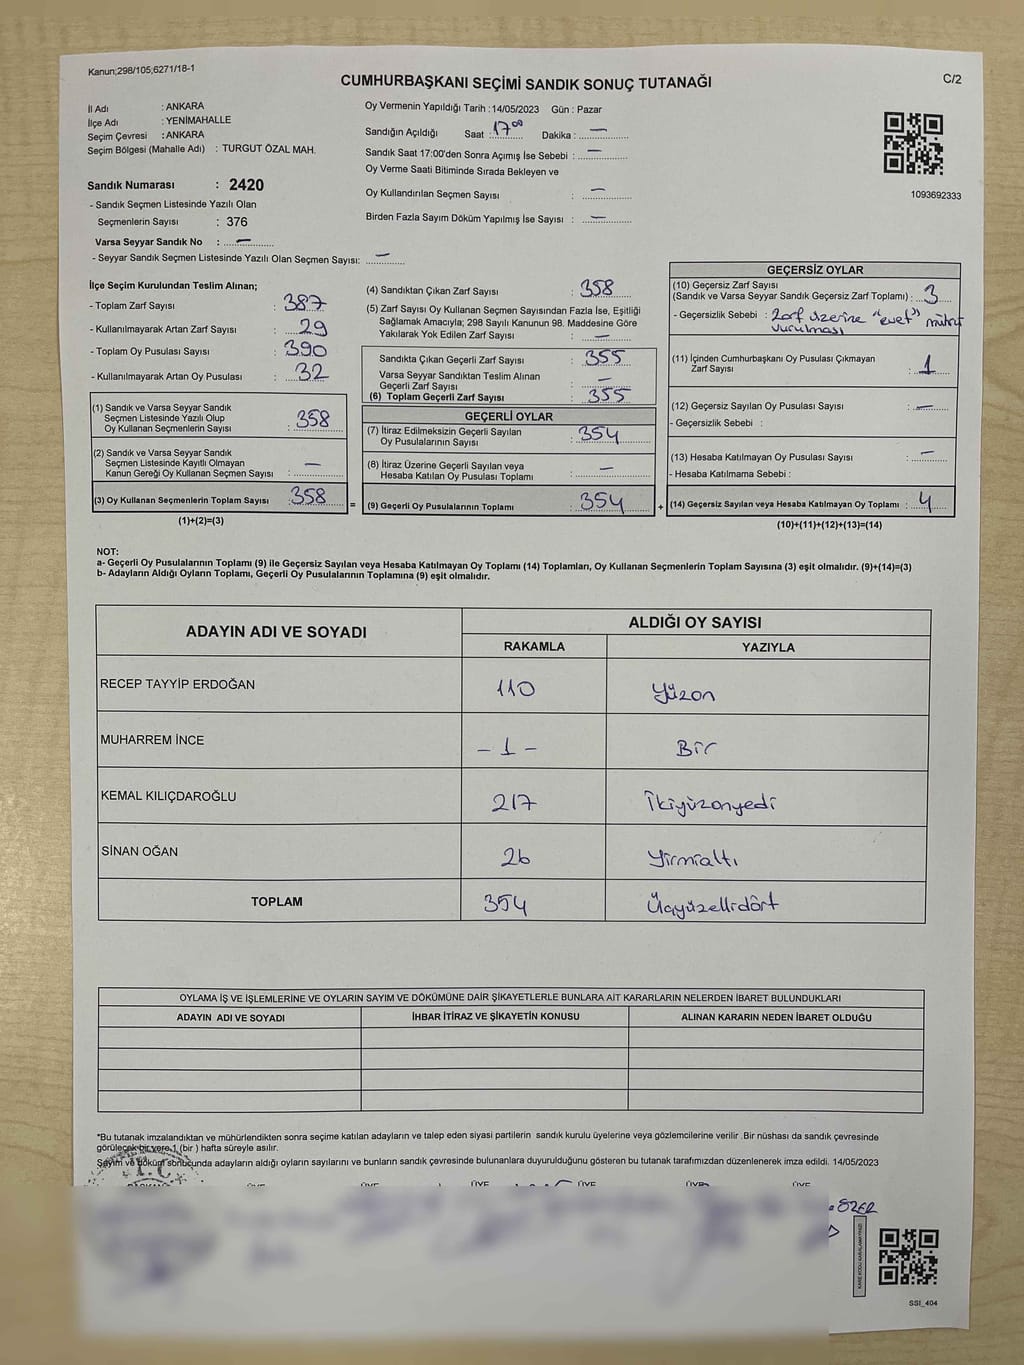 Kanun;298/105;6271/18-1
CUMHURBAŞKANI SEÇİMİ SANDIK SONUÇ TUTANAĞI
C/2
İl Adı : ANKARA
İlçe Adı : YENİMAHALLE
Seçim Çevresi : ANKARA
Seçim Bölgesi (Mahalle Adı) : TURGUT ÖZAL MAH.
Sandık Numarası : 2420
- Sandık Seçmen Listesinde Yazılı Olan
Seçmenlerin Sayısı : 376
Varsa Seyyar Sandık No : —
- Seyyar Sandık Seçmen Listesinde Yazılı Olan Seçmen Sayısı: —
Oy Vermenin Yapıldığı Tarih : 14/05/2023 Gün : Pazar
Sandığın Açıldığı Saat : 17⁰⁰ Dakika : —
Sandık Saat 17:00'den Sonra Açımış İse Sebebi : —
Oy Verme Saati Bitiminde Sırada Bekleyen ve
Oy Kullandırılan Seçmen Sayısı : —
Birden Fazla Sayım Döküm Yapılmış İse Sayısı : —
1093692333
İlçe Seçim Kurulundan Teslim Alınan;
- Toplam Zarf Sayısı : 387
- Kullanılmayarak Artan Zarf Sayısı : 29
- Toplam Oy Pusulası Sayısı : 390
- Kullanılmayarak Artan Oy Pusulası : 32
(1) Sandık ve Varsa Seyyar Sandık
Seçmen Listesinde Yazılı Olup
Oy Kullanan Seçmenlerin Sayısı : 358
(2) Sandık ve Varsa Seyyar Sandık
Seçmen Listesinde Kayıtlı Olmayan
Kanun Gereği Oy Kullanan Seçmen Sayısı : —
(3) Oy Kullanan Seçmenlerin Toplam Sayısı : 358
(1)+(2)=(3)
=
(4) Sandıktan Çıkan Zarf Sayısı : 358
(5) Zarf Sayısı Oy Kullanan Seçmen Sayısından Fazla İse, Eşitliği
Sağlamak Amacıyla; 298 Sayılı Kanunun 98. Maddesine Göre
Yakılarak Yok Edilen Zarf Sayısı : —
Sandıkta Çıkan Geçerli Zarf Sayısı : 355
Varsa Seyyar Sandıktan Teslim Alınan
Geçerli Zarf Sayısı : —
(6) Toplam Geçerli Zarf Sayısı : 355
GEÇERLİ OYLAR
(7) İtiraz Edilmeksizin Geçerli Sayılan
Oy Pusulalarının Sayısı : 354
(8) İtiraz Üzerine Geçerli Sayılan veya
Hesaba Katılan Oy Pusulası Toplamı : —
(9) Geçerli Oy Pusulalarının Toplamı : 354
+
GEÇERSİZ OYLAR
(10) Geçersiz Zarf Sayısı
(Sandık ve Varsa Seyyar Sandık Geçersiz Zarf Toplamı) : 3
- Geçersizlik Sebebi : Zarf üzerine "evet" mührü
vurulması
(11) İçinden Cumhurbaşkanı Oy Pusulası Çıkmayan
Zarf Sayısı : 1
(12) Geçersiz Sayılan Oy Pusulası Sayısı : —
- Geçersizlik Sebebi :
(13) Hesaba Katılmayan Oy Pusulası Sayısı : —
- Hesaba Katılmama Sebebi :
(14) Geçersiz Sayılan veya Hesaba Katılmayan Oy Toplamı : 4
(10)+(11)+(12)+(13)=(14)
NOT:
a- Geçerli Oy Pusulalarının Toplamı (9) ile Geçersiz Sayılan veya Hesaba Katılmayan Oy Toplamı (14) Toplamları, Oy Kullanan Seçmenlerin Toplam Sayısına (3) eşit olmalıdır. (9)+(14)=(3)
b- Adayların Aldığı Oyların Toplamı, Geçerli Oy Pusulalarının Toplamına (9) eşit olmalıdır.
ADAYIN ADI VE SOYADI
ALDIĞI OY SAYISI
RAKAMLA YAZIYLA
RECEP TAYYİP ERDOĞAN 110 Yüzon
MUHARREM İNCE – 1 – Bir
KEMAL KILIÇDAROĞLU 217 İkiyüzonyedi
SİNAN OĞAN 26 Yirmialtı
TOPLAM 354 Üçyüzellidört
OYLAMA İŞ VE İŞLEMLERİNE VE OYLARIN SAYIM VE DÖKÜMÜNE DAİR ŞİKAYETLERLE BUNLARA AİT KARARLARIN NELERDEN İBARET BULUNDUKLARI
ADAYIN ADI VE SOYADI İHBAR İTİRAZ VE ŞİKAYETİN KONUSU ALINAN KARARIN NEDEN İBARET OLDUĞU
*Bu tutanak imzalandıktan ve mühürlendikten sonra seçime katılan adayların ve talep eden siyasi partilerin sandık kurulu üyelerine veya gözlemcilerine verilir .Bir nüshası da sandık çevresinde
görülecek bir yere 1 (bir ) hafta süreyle asılır.
Sayım ve döküm sonucunda adayların aldığı oyların sayılarını ve bunların sandık çevresinde bulunanlara duyurulduğunu gösteren bu tutanak tarafımızdan düzenlenerek imza edildi. 14/05/2023
T.C.
ÜYE ÜYE ÜYE ÜYE ÜYE ÜYE
SSI_404